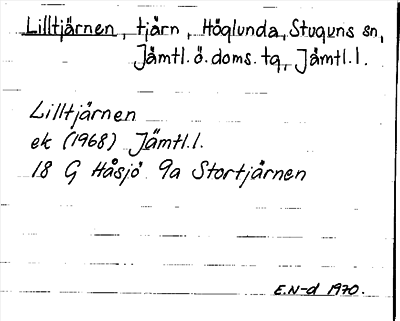 Lilltjärnen, tjärn, Höglunda, Stuguns sn,
Jämtl.ö.doms.tg, Jämtl.l.
Lilltjärnen
ek (1968) Jämtl.l.
18 G Håsjö 9a Stortjärnen
E.N-d 1970.